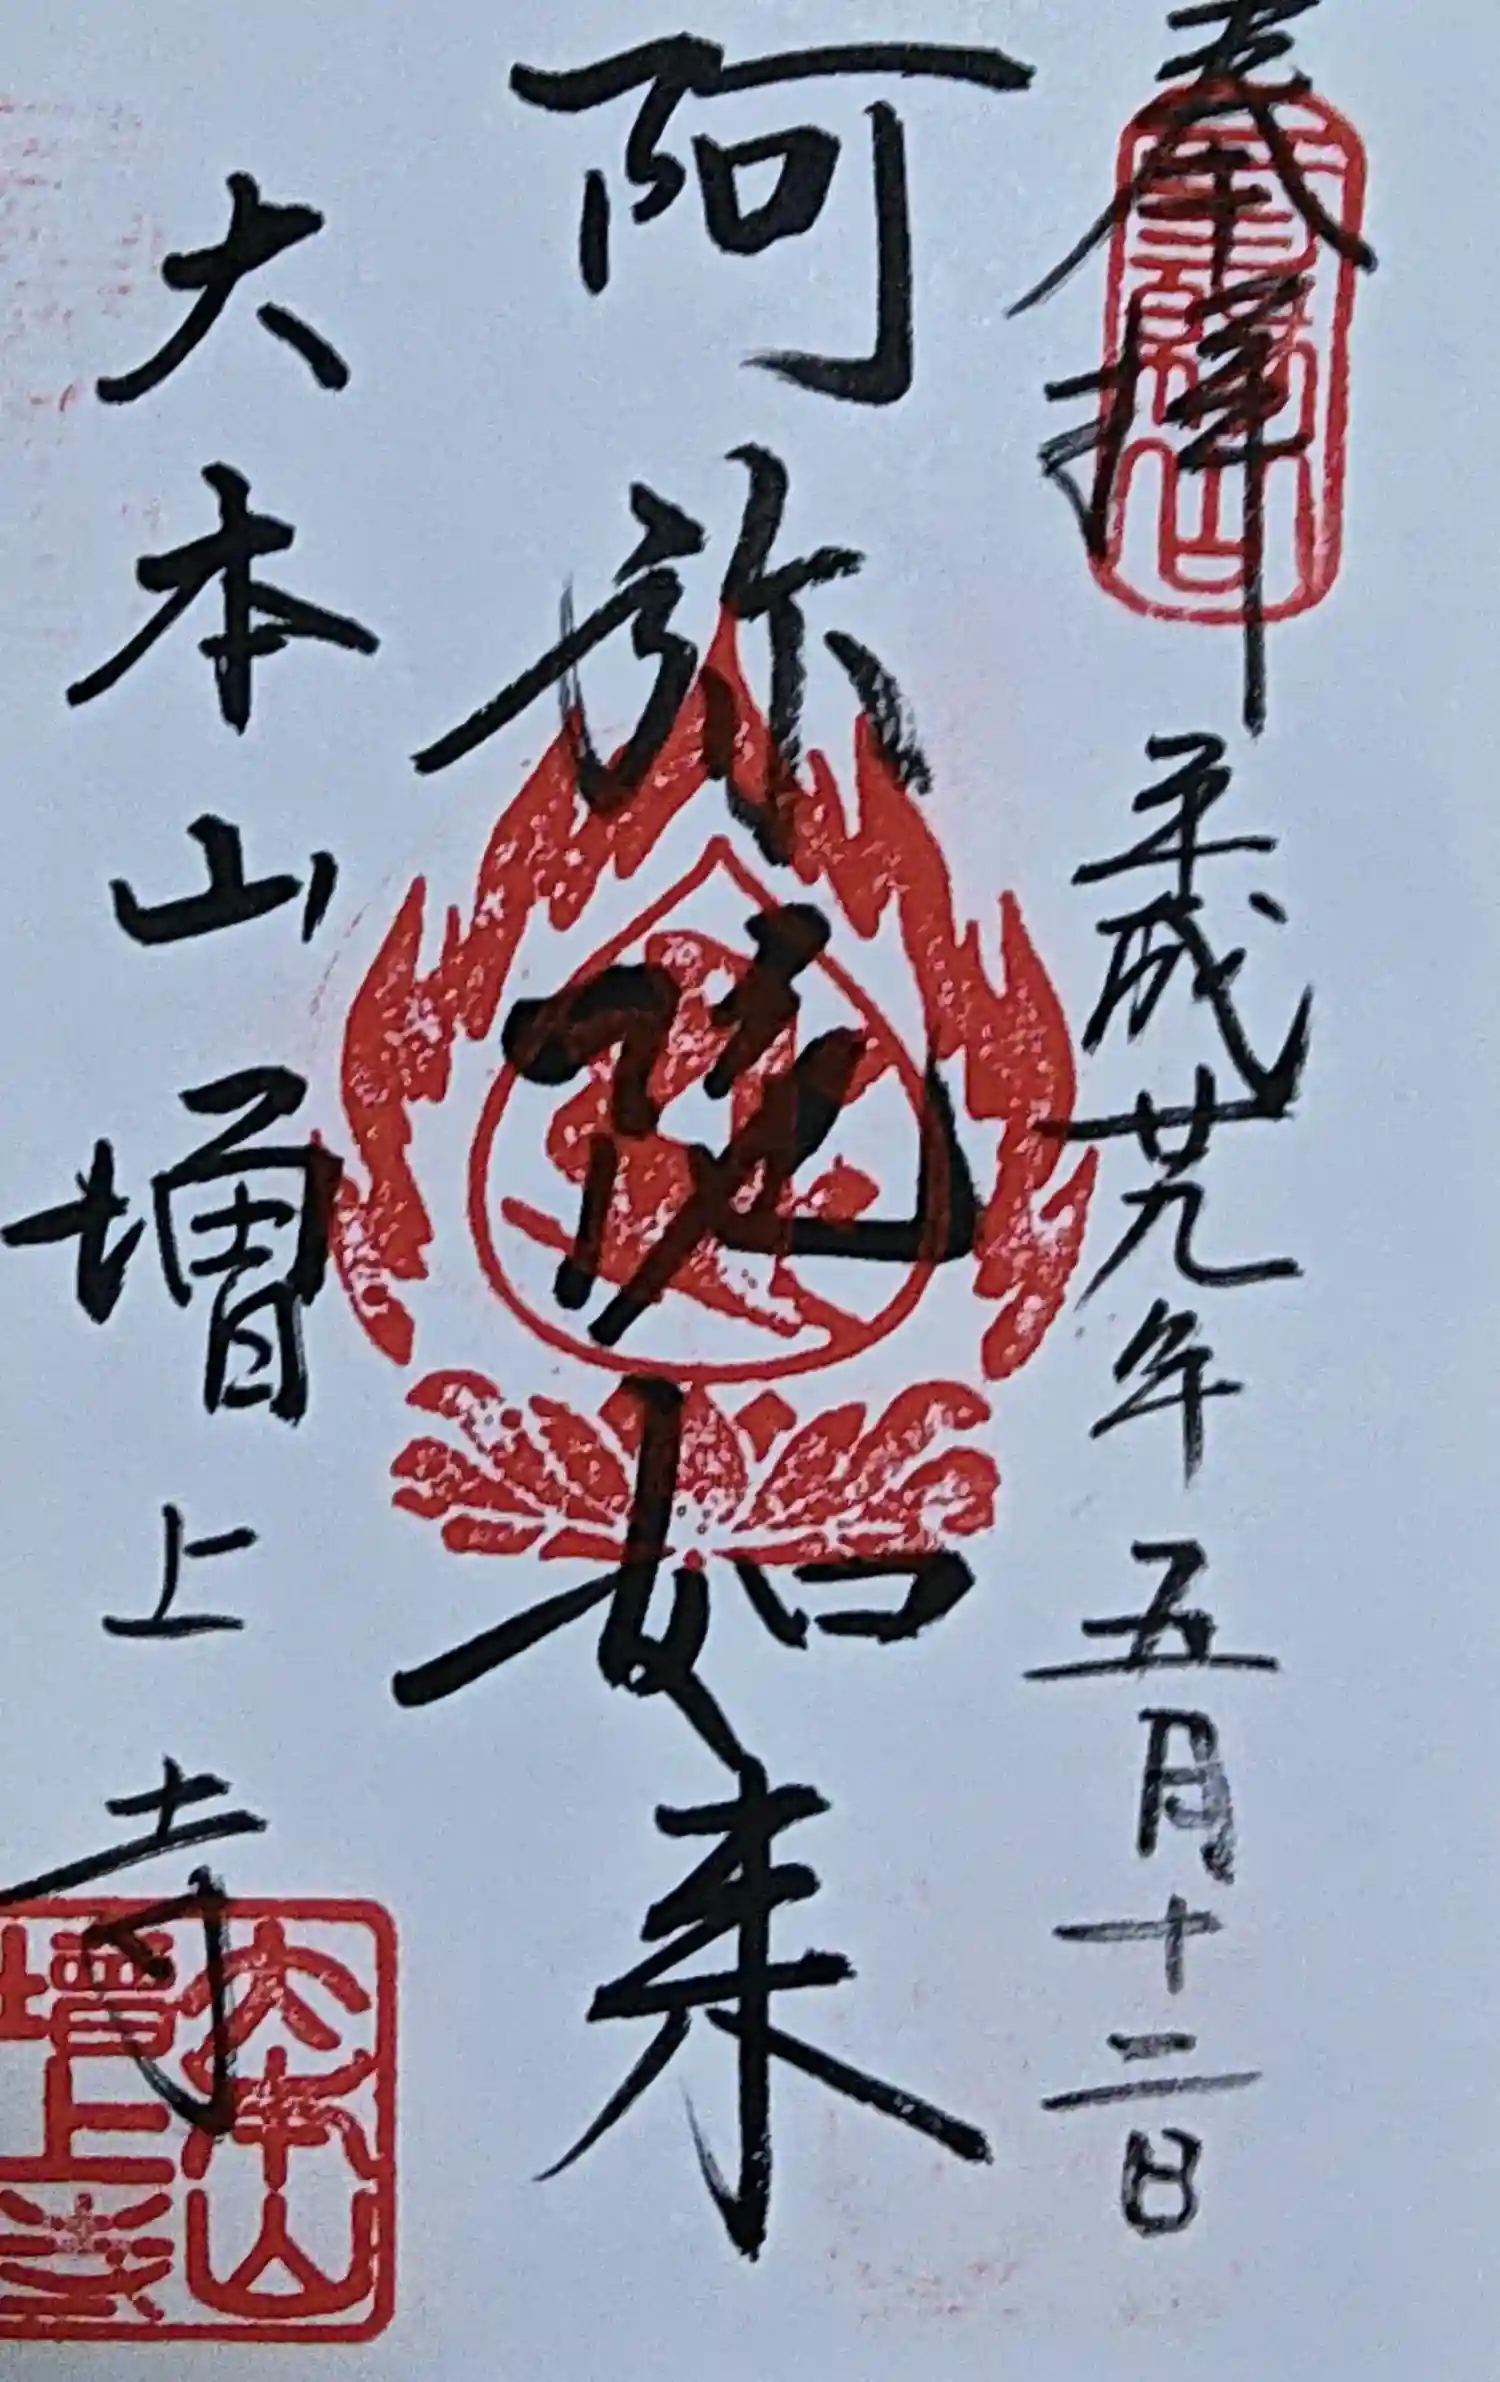 奉拝　平成廿九年五月十二日
三縁山
阿弥陀如来
大本山増上寺
大本山
増上寺